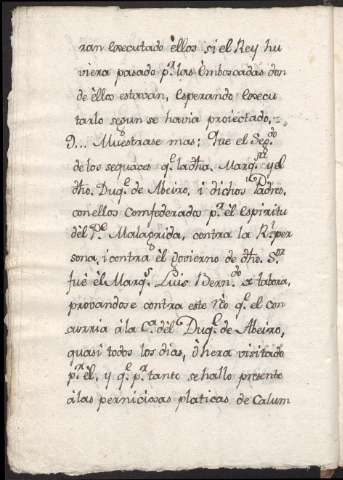 ran executado êllos si el Rey hu
viera pasado p.r las Emboscadas don
de êllos estavan, esperando execu
tarlo segun se havia proiectado,
9... Muestrase mas; que el Seg.do
de los sequaces q.e la dha. Marq.sa y el
dho. Duq.e de Abeiro, i dichos Padres,
con ellos Comfederados p.r el Espiritu
dêl P.e Malagrida, contra la R.l per
sona, i contra êl Govierno de dho. S.or
fué êl Marq.s Luis Bern.do a tabora,
provandose contra este Reo. q.e el con
curria â la C.a dêl Duq.e de Abeiro,
quasi todos los dias, ô hera visitado
p.r êl, y q.e p.r tanto se hallo presente
â las perniciosas platicas de Calum